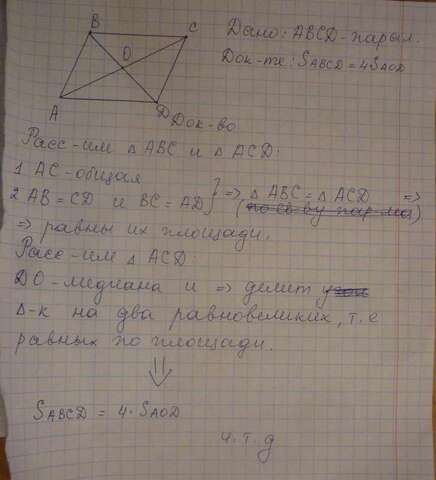 B
C
O
A
D
Дано: ABCD-парал.
Док-те: SABCD = 4SAOD
Док-во
Расс-им △ ABC и △ ACD:
1 AC-общая
2 AB = CD и BC = AD } => △ ABC = △ ACD =>
(по св-ву пар-ма)
=> равны их площади.
Расс-им △ ACD:
DO-медиана и => делит угол
△-к на два равновеликих, т.е
равных по площади.
⇓
SABCD = 4 · SAOD
ч.т.д